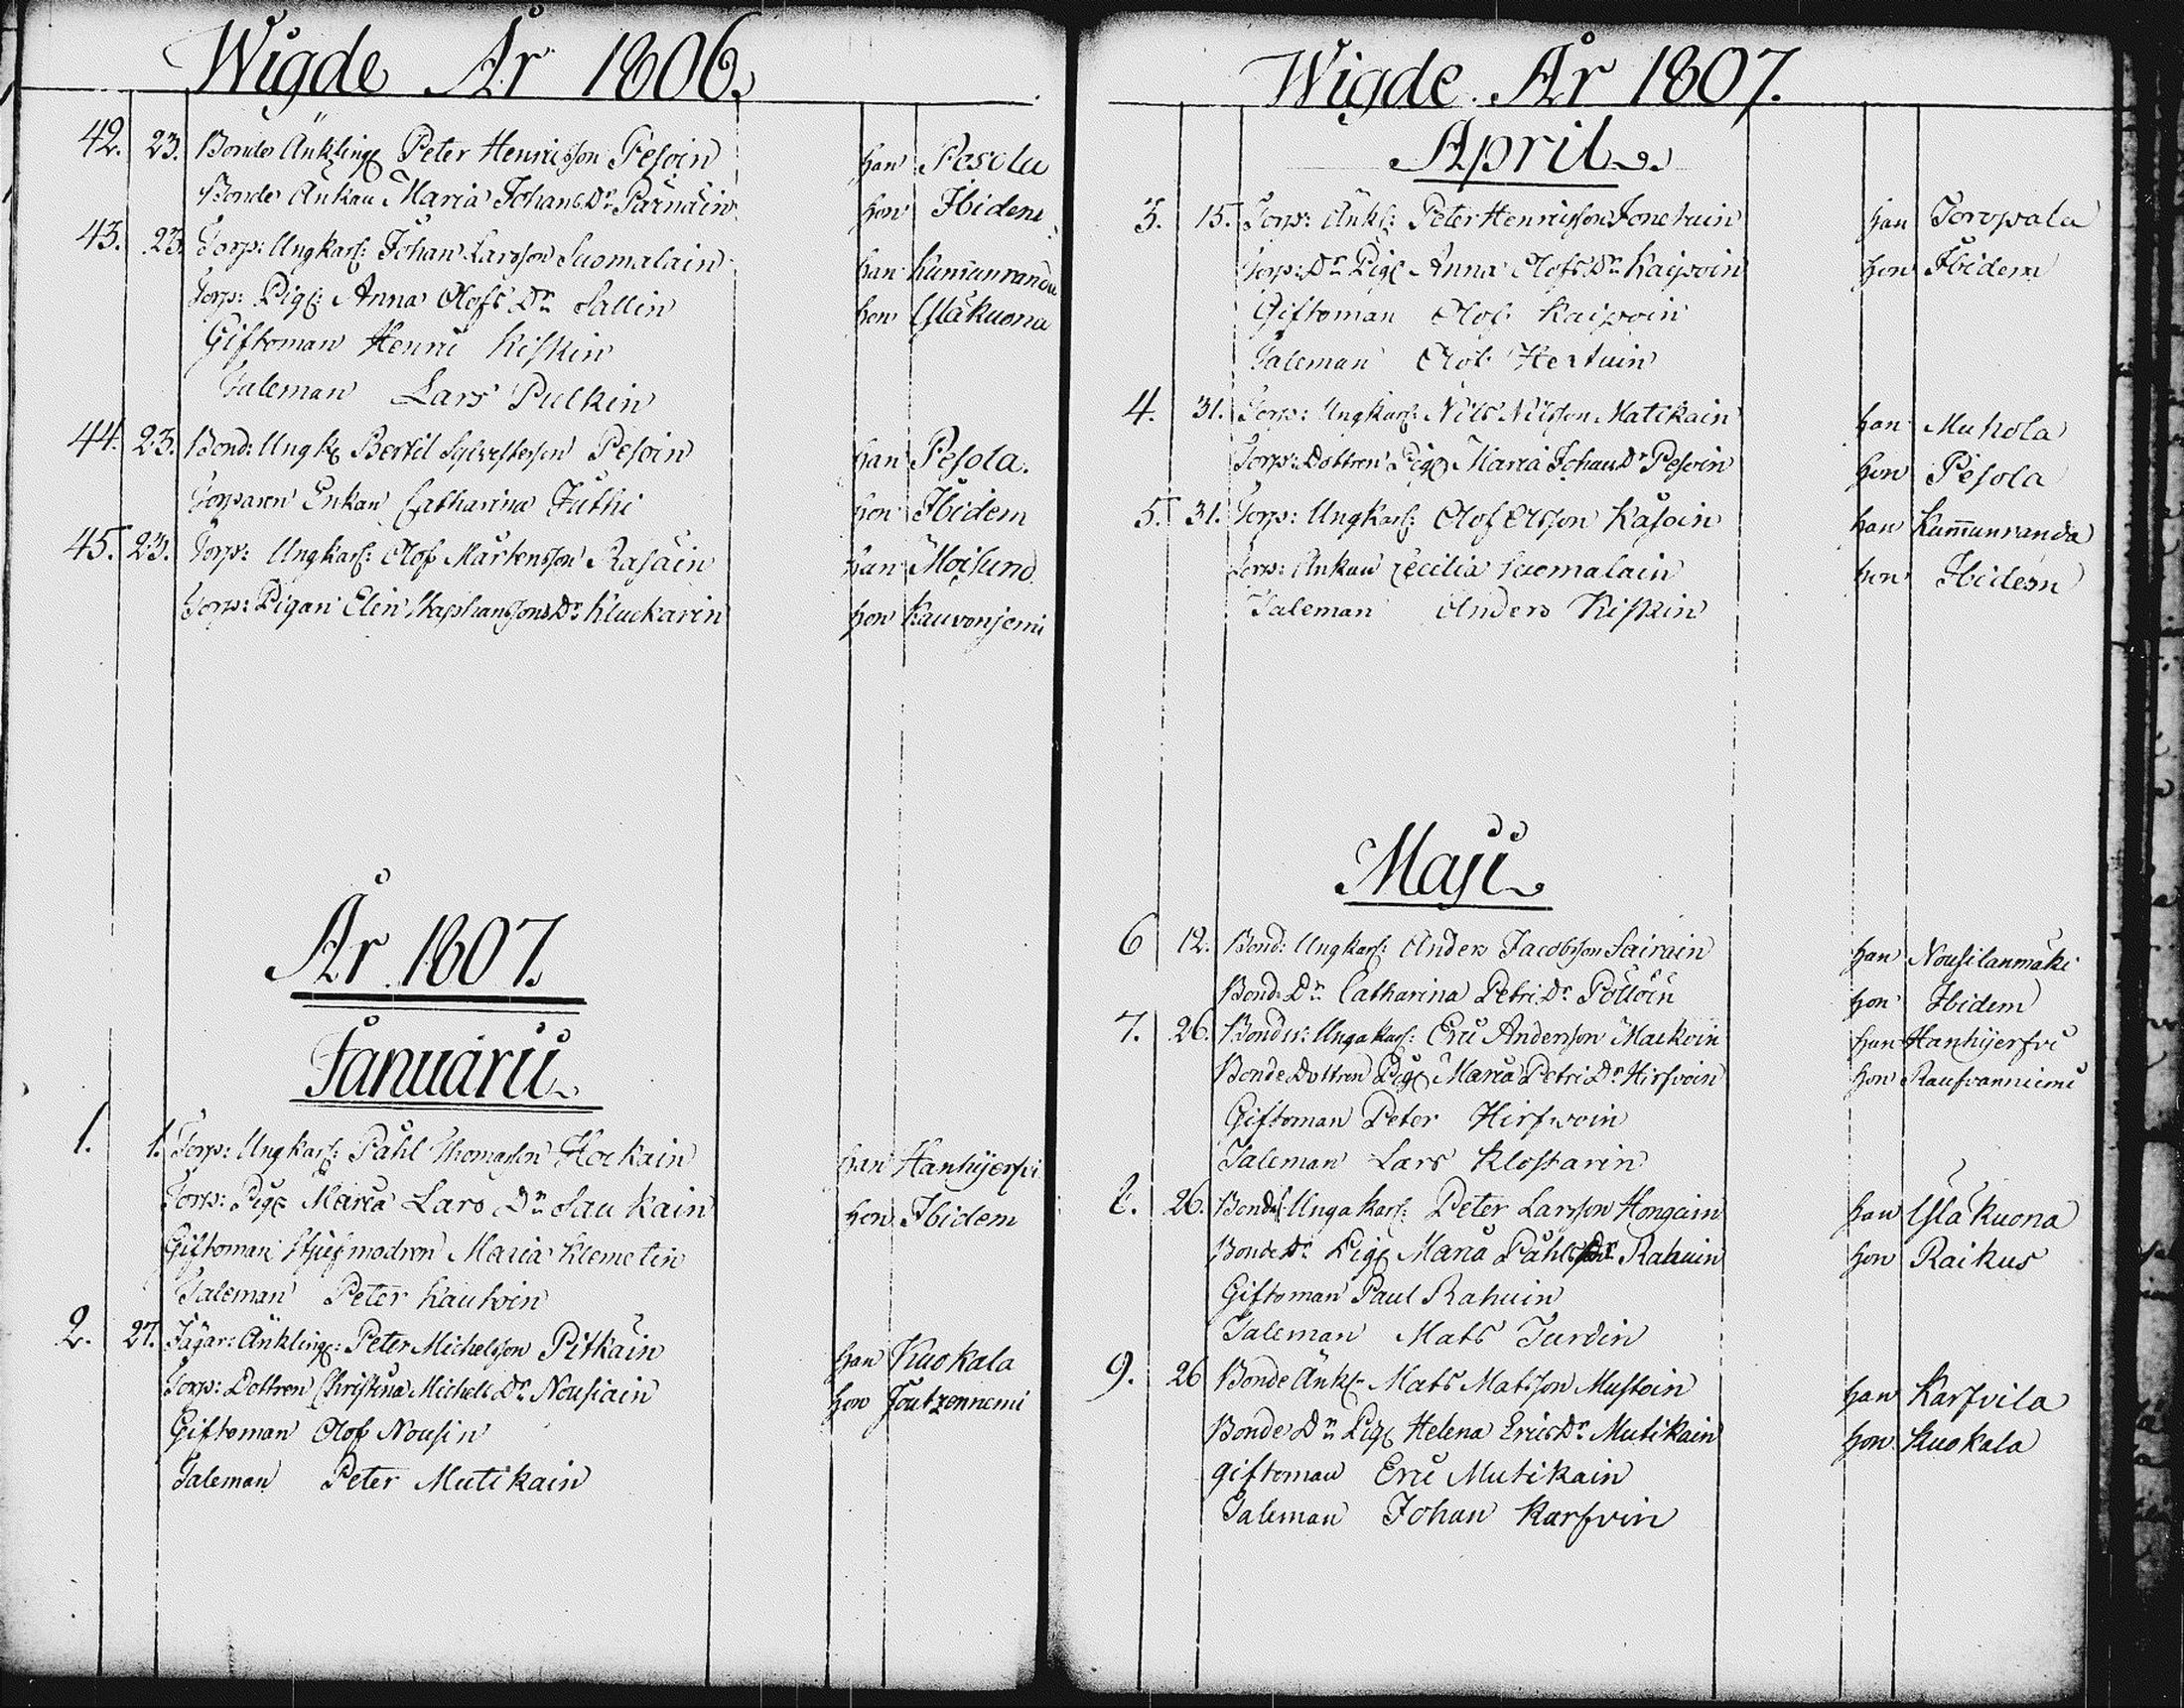 Wigde År 1806.
42. 23. Bonde Änkling Peter Henricsson Pesoin han Pesola
Bonde Änkan Maria Johans Dr Pärnäin hon Ibidem
43. 23. Torp: Ungkarl: Johan Larsson Suomalain han Kummunranda
Torp: Pig: Anna Olofs Dr Sallin hon Yläkuona
Giftoman Henric Kiskin
Taleman Lars Pulkin
44. 23. Bond: Ungk: Bertil Pesoin han Pesola.
Torparen Enkan Catharina hon Ibidem
45. 23. Torp: Ungkarl: Olof Mårtensson Rasäin han
Torp: Pigan Elin Dr Kluckarin hon
År 1807.
Januarii
1. 1. Torp: Ungkarl: Påhl Thomasson Hockain han Hanhijerfvi
Torp: Pig: Maria Lars Dr Saukain hon Ibidem
Giftoman Stjufmodren Maria Klemetin
Taleman Peter Kauhoin
2. 27. Jägar: Änkling: Peter Michelsson Pitkäin han Kuokala
Torp: Dottren Christina Michels Dr Nousiain hon
Giftoman Olof Nousin
Taleman Peter Mutikain
Wigde År 1807.
April
3. 15. Torp: Änkl: Peter Henricsson han Toropala
Torp: Dr Pig: Anna Olofs Dr Kaipoin hon Ibidem
Giftoman Olof Kaipoin
Taleman Olof
4. 31. Torp: Ungkarl: Nils Nilsson Matikain han Muhola
Torp: Dottren Pig: Maria Johans Dr Pesoin hon Pesola
5. 31. Torp: Ungkarl: Olof Olsson Kasoin han Kummunranda
Torp: Ankan Cecilia Suomalain hon Ibidem
Taleman Anders Kiskin
Maji
6 12. Bond: Ungkarl: Anders Jacobsson Sairain han Nousilanmäki
Bond. Dr Catharina Petri Dr Pöllöin hon Ibidem
7. 26. Bond: Ungakarl: Eric Andersson Mackoin han Hanhijerfvi
Bonde Dottren Pig: Maria Petri Dr Hirfvoin hon Raufvanniemi
Giftoman Peter Hirfvoin
Taleman Lars Klostarin
8. 26. Bond: Ungakarl: Peter Larsson Hongain han Yläkuona
Bonde Dr Pig: Maria Påhls Dr Rahuin hon Raikus
Giftoman Paul Rahuin
Taleman Mats Turdin
9. 26 Bonde Änkl: Mats Matsson Mustoin han Karfvila
Bonde Dr Pig: Helena Erics Dr Mutikain hon Kuokala
giftoman Eric Mutikain
Taleman Johan Karfvin